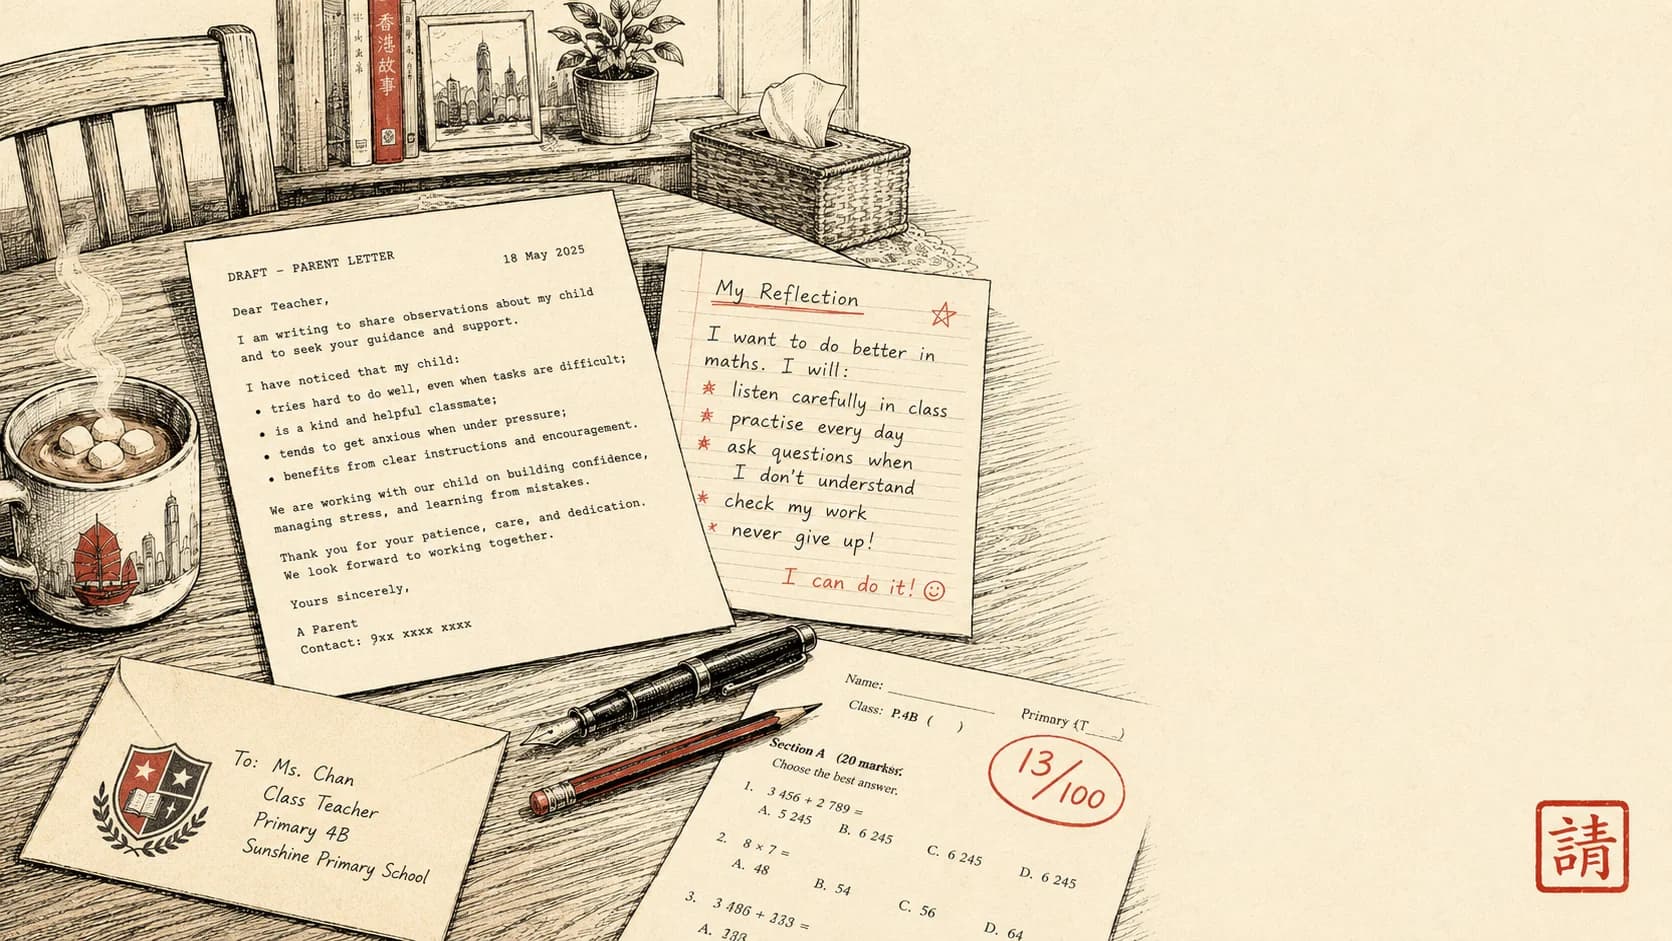 香港故事
DRAFT – PARENT LETTER
18 May 2025
Dear Teacher,
I am writing to share observations about my child
and to seek your guidance and support.
I have noticed that my child:
• tries hard to do well, even when tasks are difficult;
• is a kind and helpful classmate;
• tends to get anxious when under pressure;
• benefits from clear instructions and encouragement.
We are working with our child on building confidence,
managing stress, and learning from mistakes.
Thank you for your patience, care, and dedication.
We look forward to working together.
Yours sincerely,
A Parent
Contact: 9xx xxxx xxxx
My Reflection
I want to do better in
maths. I will:
listen carefully in class
practise every day
ask questions when
I don't understand
check my work
never give up!
I can do it!
To: Ms. Chan
Class Teacher
Primary 4B
Sunshine Primary School
Name:
Class: P.4B ( )
Primary
13/100
Section A (20 marks.
Choose the best answer.
1. 3 456 + 2 789 =
A. 5 245 B. 6 245 C. 6 245 D. 6 245
2. 8 × 7 =
A. 48 B. 54 C. 56 D. 64
3. 3 486 + 333 =
A.
請